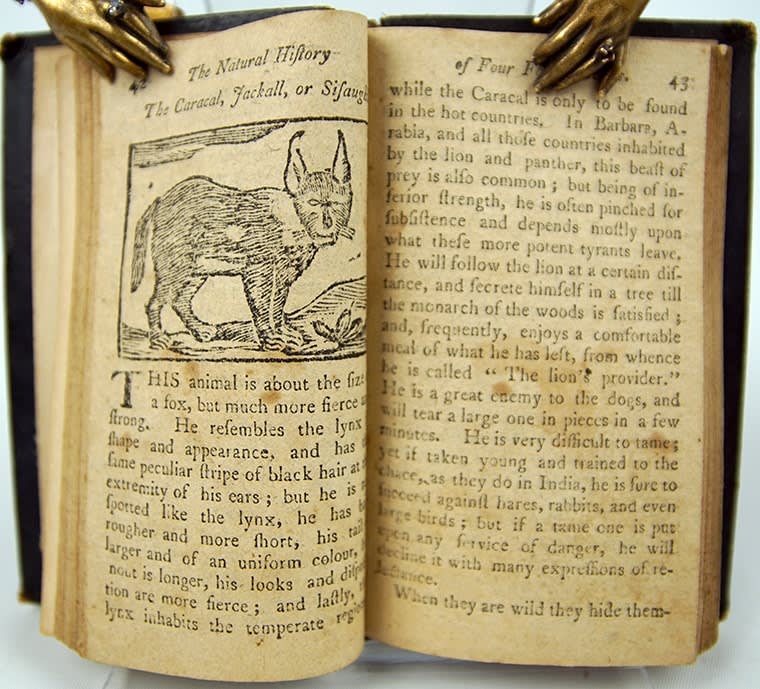 42
The Natural Hiſtory
The Caracal, Jackall, or Siſaugh
THIS animal is about the ſize
a fox, but much more fierce
ſtrong. He reſembles the lynx
ſhape and appearance, and has
ſame peculiar ſtripe of black hair at
extremity of his ears ; but he is
ſpotted like the lynx, he has
rougher and more ſhort, his tail
larger and of an uniform colour,
nout is longer, his looks and diſpo
tion are more fierce ; and laſtly,
lynx inhabits the temperate regio
of Four F s. 43
while the Caracal is only to be found
in the hot countries. In Barbara, A-
rabia, and all thoſe countries inhabited
by the lion and panther, this beaſt of
prey is alſo common ; but being of in-
ferior ſtrength, he is often pinched for
ſubſiſtence and depends moſtly upon
what theſe more potent tyrants leave.
He will follow the lion at a certain diſ-
tance, and ſecrete himſelf in a tree till
the monarch of the woods is ſatisfied ;
and, frequently, enjoys a comfortable
meal of what he has left, from whence
he is called “ The lion's provider.”
He is a great enemy to the dogs, and
will tear a large one in pieces in a few
minutes. He is very difficult to tame ;
yet if taken young and trained to the
chace, as they do in India, he is ſure to
ſucceed againſt hares, rabbits, and even
large birds ; but if a tame one is put
upon any ſervice of danger, he will
decline it with many expreſſions of re-
luctance.
When they are wild they hide them-